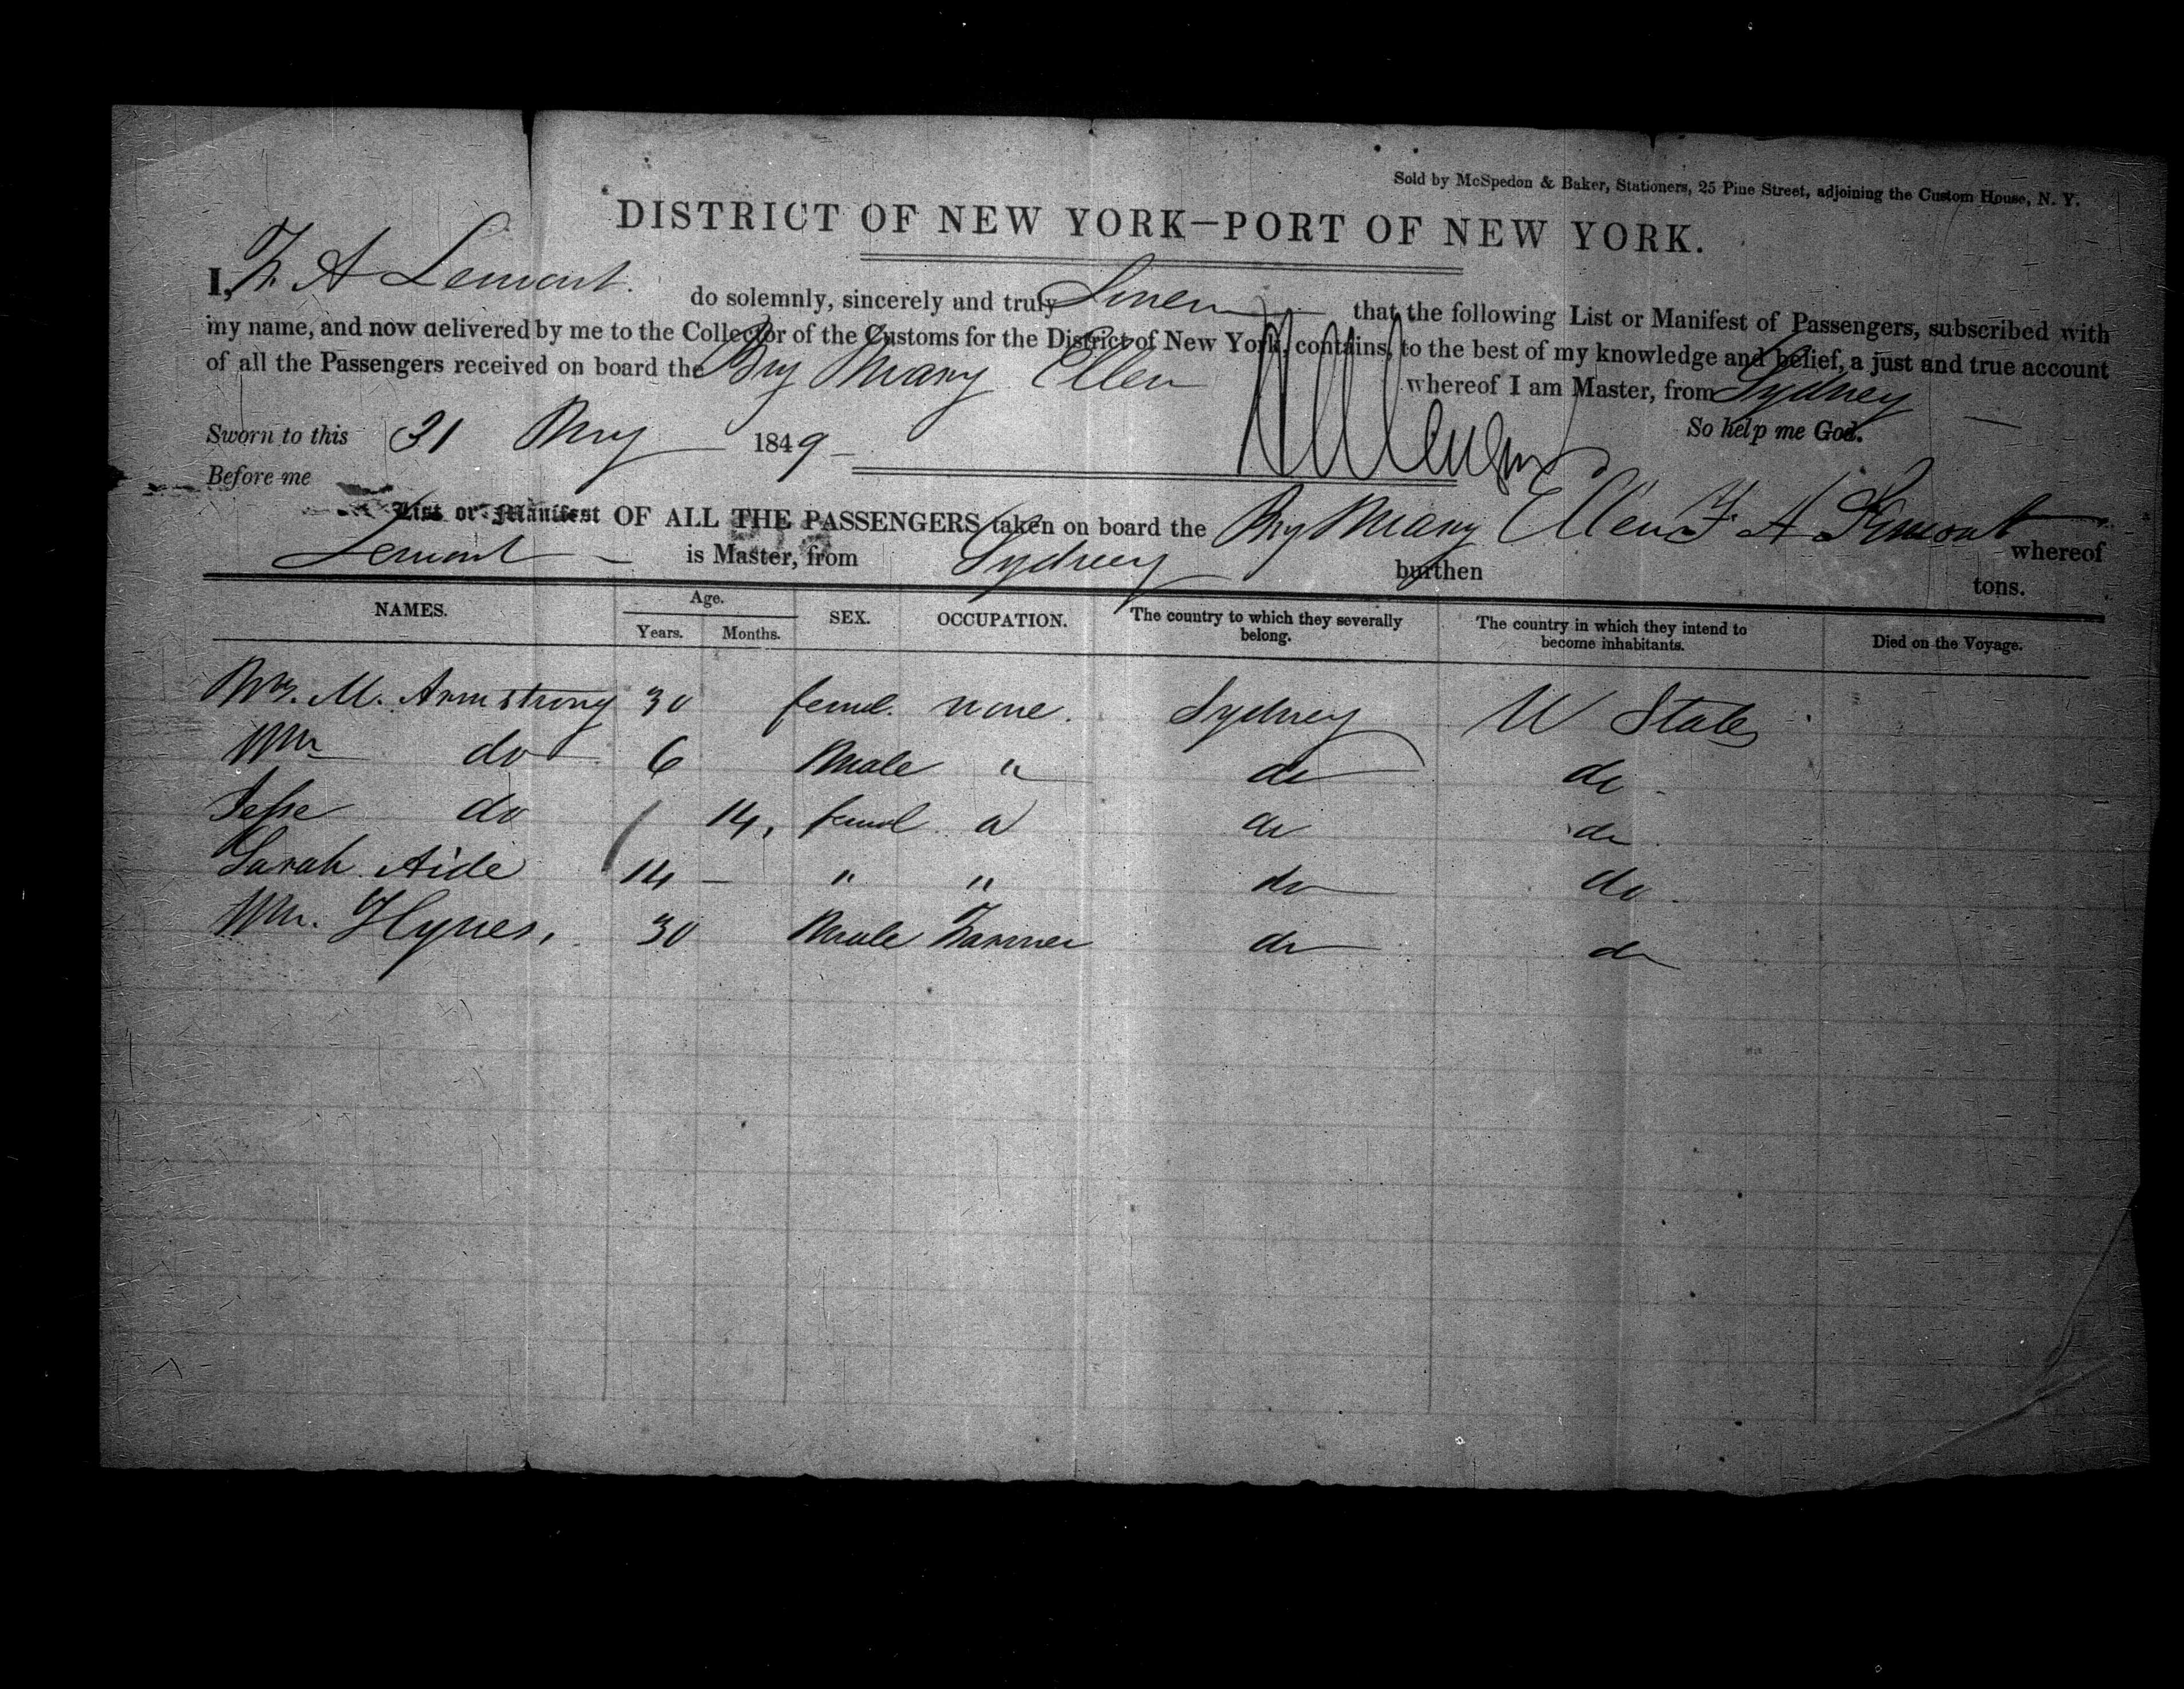 Sold by McSpedon & Baker, Stationers, 25 Pine Street, adjoining the Custom House, N. Y.
DISTRICT OF NEW YORK—PORT OF NEW YORK.
I, F. A Lemont. do solemnly, sincerely and truly that the following List or Manifest of Passengers, subscribed with
my name, and now delivered by me to the Collector of the Customs for the District of New York, contains, to the best of my knowledge and belief, a just and true account
of all the Passengers received on board the Brig Mary Ellen whereof I am Master, from Sydney
So help me God.
Sworn to this 31 May 1849
Before me
List or Manifest OF ALL THE PASSENGERS taken on board the Brig Mary Ellen F. A Lemont whereof
Lemont is Master, from Sydney burthen tons.
NAMES. Age. Years. Months. SEX. OCCUPATION. The country to which they severally belong. The country in which they intend to become inhabitants. Died on the Voyage.
Mrs. M. Armstrong 30 femal. none. Sydney U States
Wm do 6 Male " do do
Jesse do 14, femal do do
Sarah Aide 14 — " " do do
Wm. Hynes, 30 Male Farmer do do